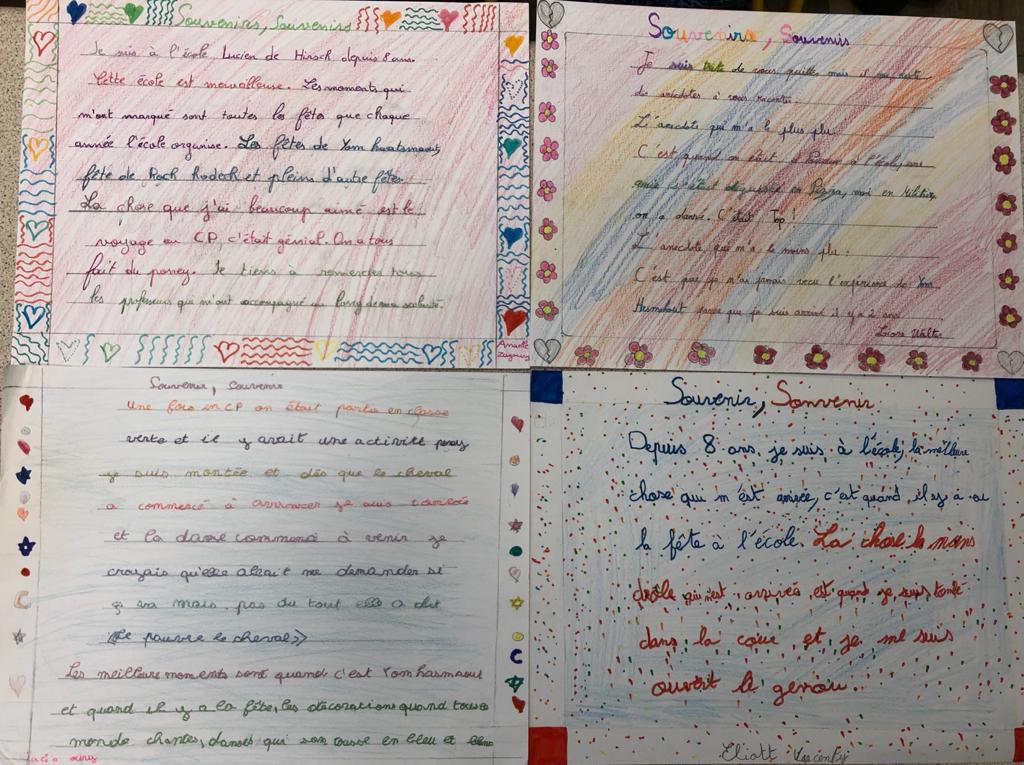 Souvenirs, Souvenirs
Je suis à l'école Lucien de Hirsch depuis 8 ans.
Cette école est merveilleuse. Les moments qui
m'ont marqué sont toutes les fêtes que chaque
année l'école organise. Les fêtes de Yom
fête de Roch Hodech et pleins d'autre fêtes.
La chose que j'ai beaucoup aimé est le
voyage au CP, c'était génial. On a tous
fait du poney. Je tiens à remercier tous
les professeurs qui m'ont accompagné au long de ma scolarité.
Souvenirs, Souvenirs
Je suis triste de vous quitter mais il me reste
des anécdotes à vous raconter.
L'anecdote qui m'a le plus plu:
C'est quand on était à Pourim à l'école,
amie s'était déguisée en moi en
on a dansé. C'était Top!
L'anecdote qui m'a le moins plu:
C'est que je n'ai jamais vécu l'expérience de Yom
parce que je suis arrivé il y a 2 ans.
Souvenir, Souvenir
Une fois en CP on était partie en classe
verte et il y avait une activité poney
je suis montée et dés que le cheval
a commencé à avancer je suis tombée
et la dame commencé à venir je
croyais qu'elle allait me demander si
ça va mais, pas du tout elle a dit
«Le pauvre le cheval»
Les meilleurs moments sont quand c'est Yom hasmaout
et quand il y a la fête, les décorations quand tous
monde chantes, danses qui son tousse en bleu et blanc
Souvenir, Souvenir
Depuis 8 ans, je suis à l'école, la meilleure
chose qui m'est arrivée, c'est quand il y à eu
la fête à l'école. La chose la moins
drôle qui m'est arrivée est quand je suis tombé
dans la cour et je me suis
ouvert le genou.
Eliott